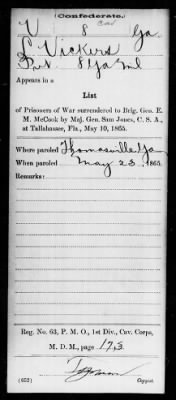 Confederate.
V 8 Ga.
L Vickers
Pvt 8 Ga
Appears in a
List
of Prisoners of War surrendered to Brig. Gen. E.
M. McCook by Maj. Gen. Sam Jones, C. S. A.,
at Tallahassee, Fla., May 10, 1865.
Where paroled Thomasville, Ga
When paroled May 23, 1865.
Remarks:
Reg. No. 63, P. M. O., 1st Div., Cav. Corps,
M. D. M., page 173
(652) Copyist.